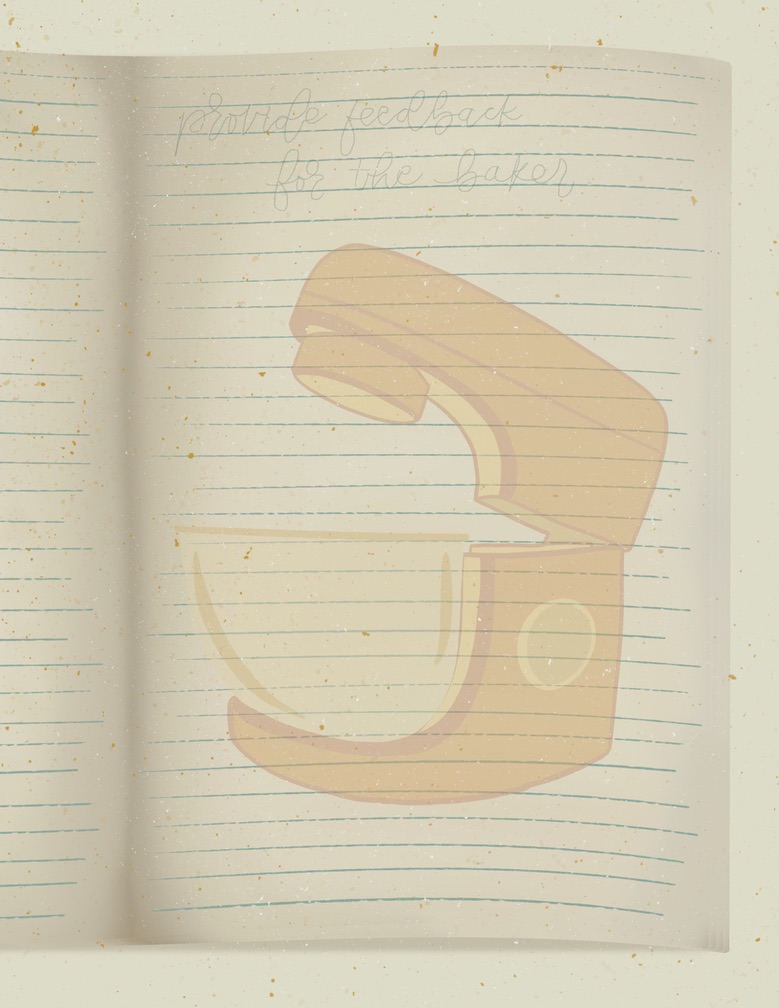 provide feedback
for the baker